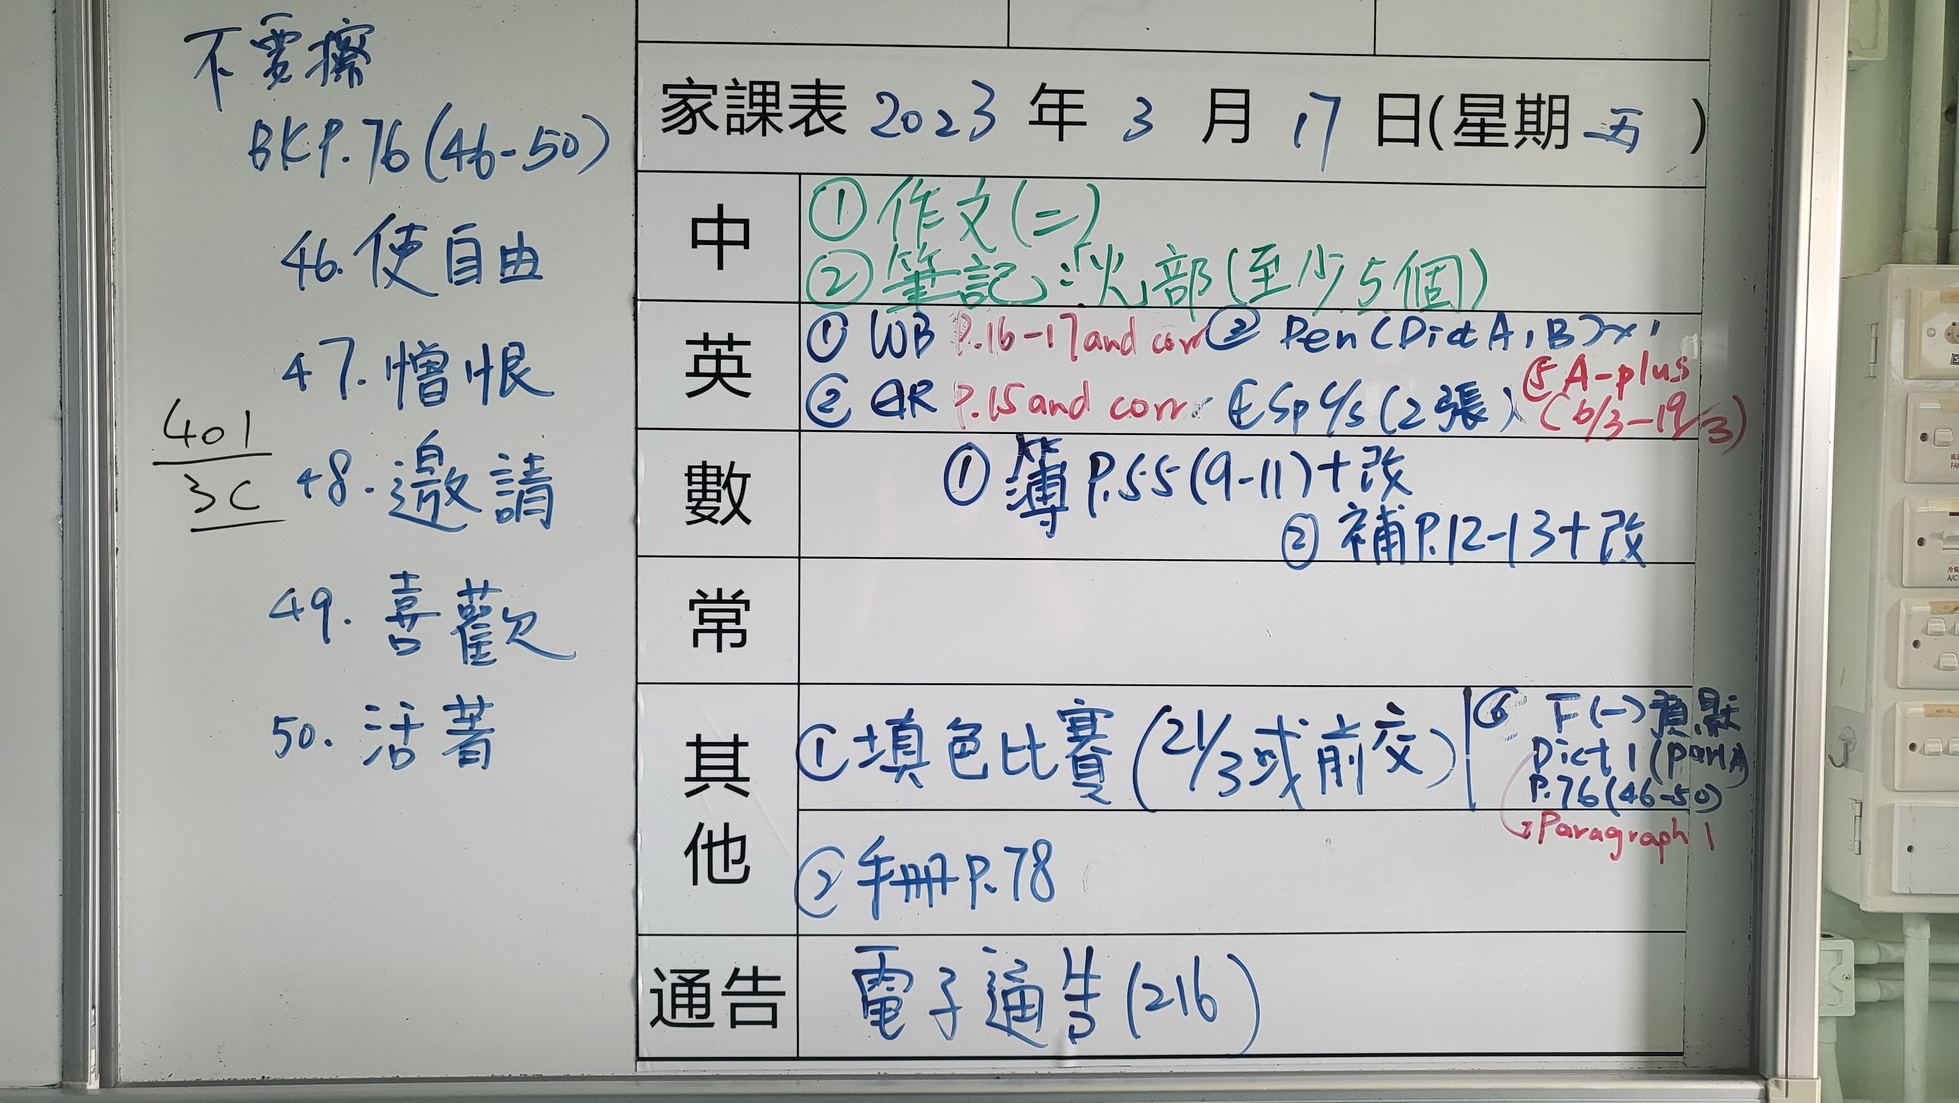 不要擦
BK P.76 (46-50)
46. 使自由
47. 憎恨
401
3C
48. 邀請
49. 喜歡
50. 活著
家課表 2023 年 3 月 17 日(星期 五 )
中
①作文(二)
②筆記:火部(至少5個)
英
① WB P.16-17 and corr ③ Pen (Dict A, B) x1
② GR P.15 and corr ④ Sp c/s (2張) ⑤ A-plus
(6/3-19/3)
數
① 簿 P.55 (9-11)+改
② 補 P.12-13+改
常
其他
①填色比賽 (21/3或前交)
⑥ 下(一)預默
Dict 1 (Part A)
P.76 (46-50)
Paragraph 1
②手冊 P.78
通告
電子通告 (216)